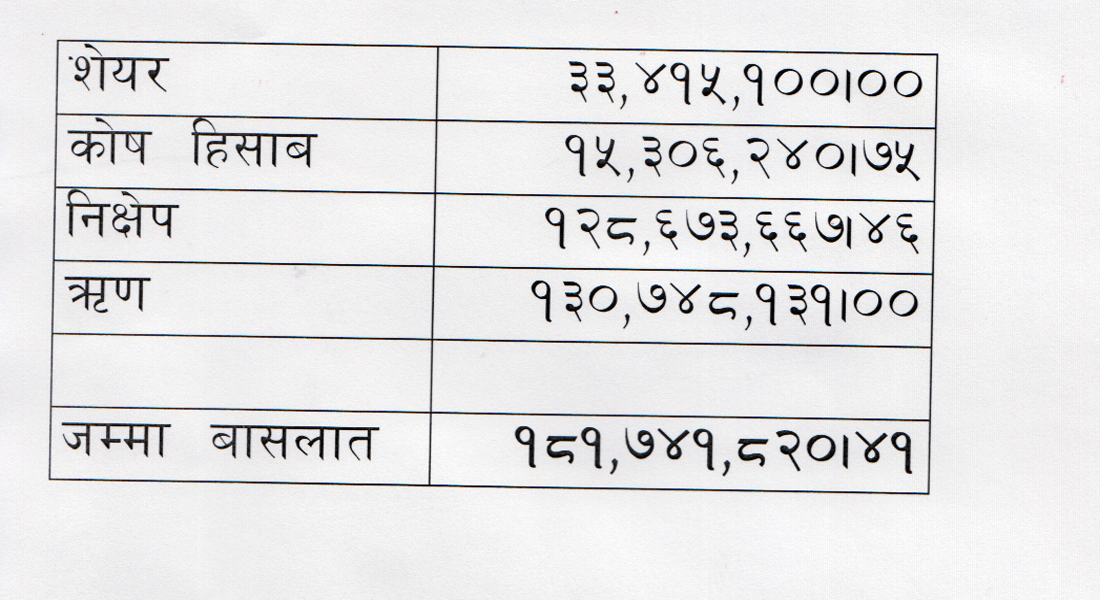 शेयर ३३,४१५,१००।००
कोष हिसाब १५,३०६,२४०।७५
निक्षेप १२८,६७३,६६७।४६
ऋण १३०,७४८,१३१।००
जम्मा बासलात १८१,७४१,८२०।४१